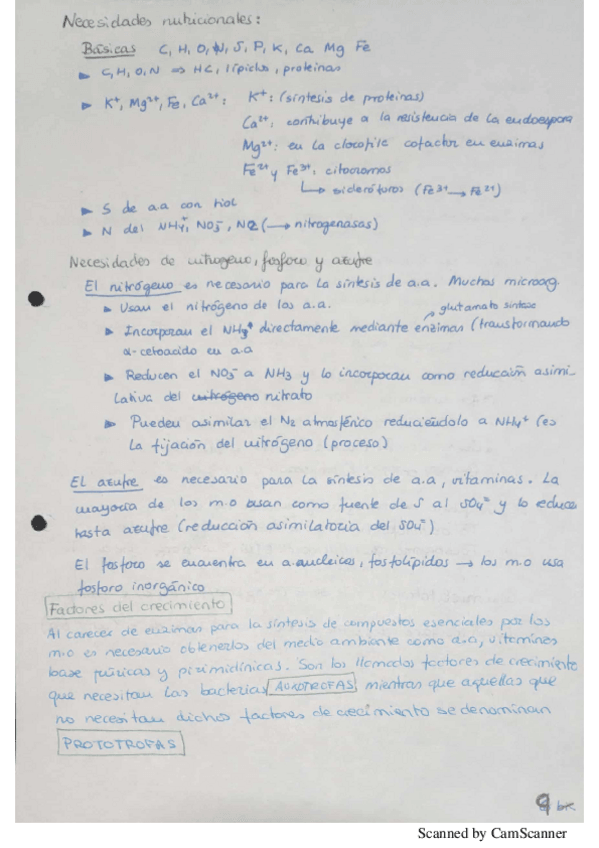 Necesidades nutricionales:
Básicas C, H, O, N, S, P, K, Ca Mg Fe
► C, H, O, N ⇒ HC, lípidos, proteínas
► K⁺, Mg²⁺, Fe, Ca²⁺: K⁺: (síntesis de proteínas)
Ca²⁺: contribuye a la resistencia de la endoespora
Mg²⁺: en la clorofila cofactor en enzimas
Fe²⁺ y Fe³⁺: citocromos
↳ sideróforos (Fe³⁺ → Fe²⁺)
► S de aa con tiol
► N del NH₄⁺, NO₃⁻, N2 (→ nitrogenasas)
Necesidades de nitrogeno, fosforo y azufre
El nitrógeno es necesario para la síntesis de a.a. Muchos microorg.
► Usan el nitrógeno de los a.a.
glutamato sintasa
► Incorporan el NH₄⁺ directamente mediante enzimas (transformando
α-cetoácido en a.a
► Reducen el NO₃⁻ a NH3 y lo incorporan como reducción asimi-
lativa del nitrógeno nitrato
► Pueden asimilar el N₂ atmosférico reduciéndolo a NH₄⁺ (es
la fijación del nitrógeno (proceso)
El azufre es necesario para la síntesis de a.a, vitaminas. La
mayoría de los m.o usan como fuente de S al SO₄⁼ y lo
hasta azufre (reducción asimilatoria del SO₄⁼)
El fosforo se encuentra en a.nucleicos, fosfolípidos → los m.o usa
fosforo inorgánico
Factores del crecimiento
Al carecer de enzimas para la síntesis de compuestos esenciales por los
m.o es necesario obtenerlos del medio ambiente como a.a, vitaminas
base púricas y pirimidínicas. Son los llamados factores de crecimiento
que necesitan las bacterias AUXOTROFAS mientras que aquellas que
no necesitan dichos factores de crecimiento se denominan
PROTOTROFAS
9
Scanned by CamScanner